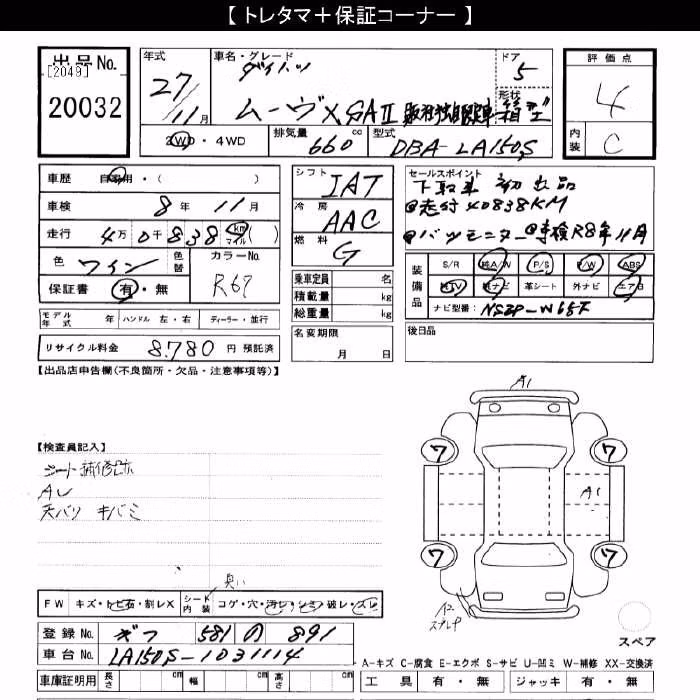 【 トレタマ＋保証コーナー 】
出品No.
[2049]
20032
年式
27/11月
車名・グレード
ダイハツ
ムーヴX SAⅡ
ドア
5
形状
箱型
評価点
4
内装
C
2WD・4WD
排気量 660 cc
型式 DBA-LA150S
車歴 自家用・( )
車検 8年 11月
走行 4万0千838 km マイル( )
色 ワイン 色替
カラーNo. R67
保証書 有・無
シフト IAT
冷房 AAC
燃料 G
乗車定員 名
積載量 kg
総重量 kg
セールスポイント
下取車 初出品
@走行40838KM
@バックモニター @車検R8年11月
装備品
S/R 純A/W P/S P/W ABS
純TV 純ナビ 革シート 外ナビ エアB
ナビ型番: NSZP-W65F
モデル年式 年 ハンドル 左・右 ディーラー・並行
リサイクル料金 8,780 円 預託済
名変期限
月 日
後日品
【出品店申告欄(不良箇所・欠品・注意事項等)】
【検査員記入】
シート補修跡
AU
天バリ キバミ
臭い
FW キズ・トビ石・割レX シート内装 コゲ・穴・汚レ・シミ・破レ・スレ
A1
ワ
ワ
A1
ワ
ワ
A2
スペア
登録No. ギフ 581 の 891
車台No. LA150S-1031114
車庫証明用 長さ cm 幅 cm 高さ cm
A-キズ C-腐食 E-エクボ S-サビ U-凹ミ W-補修 XX-交換済
工具 有・無 ジャッキ 有・無